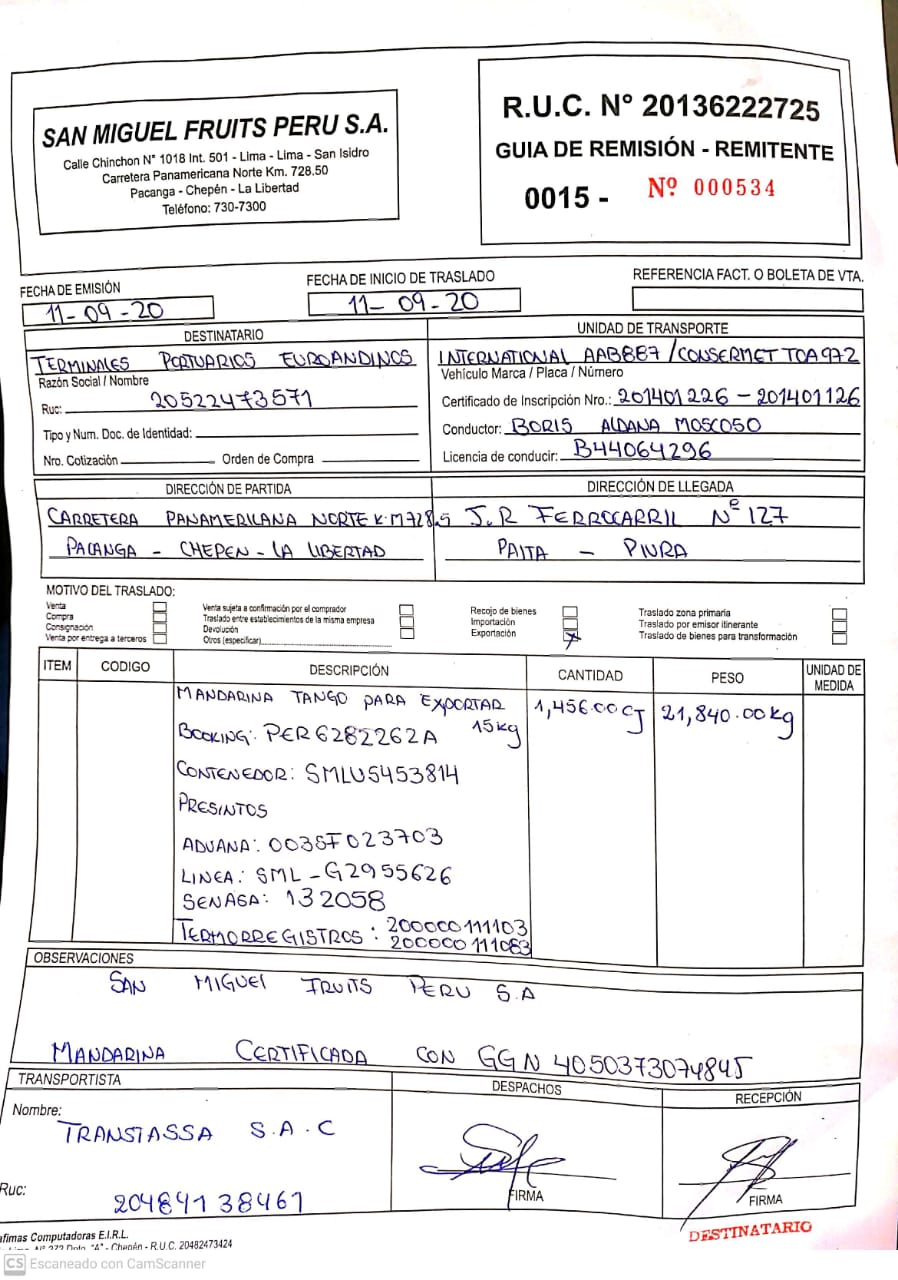 SAN MIGUEL FRUITS PERU S.A.
Calle Chinchon N° 1018 Int. 501 - Lima - Lima - San Isidro
Carretera Panamericana Norte Km. 728.50
Pacanga - Chepén - La Libertad
Teléfono: 730-7300
R.U.C. N° 20136222725
GUIA DE REMISIÓN - REMITENTE
0015 - Nº 000534
FECHA DE EMISIÓN
11-09-20
FECHA DE INICIO DE TRASLADO
11-09-20
REFERENCIA FACT. O BOLETA DE VTA.
DESTINATARIO
TERMINALES PORTUARIOS EUROANDINOS
Razón Social / Nombre
Ruc: 20522473571
Tipo y Num. Doc. de Identidad:
Nro. Cotización Orden de Compra
UNIDAD DE TRANSPORTE
INTERNATIONAL AAB887 / CONSERMET TOA972
Vehículo Marca / Placa / Número
Certificado de Inscripción Nro.: 201401226 - 201401126
Conductor: BORIS ALDANA MOSCOSO
Licencia de conducir: B44064296
DIRECCIÓN DE PARTIDA
CARRETERA PANAMERICANA NORTE K.M728.5
PACANGA - CHEPEN - LA LIBERTAD
DIRECCIÓN DE LLEGADA
J.R FERROCARRIL Nº 127
PAITA - PIURA
MOTIVO DEL TRASLADO:
Venta
Compra
Consignación
Venta por entrega a terceros
Venta sujeta a confirmación por el comprador
Traslado entre establecimientos de la misma empresa
Devolución
Otros (especificar)
Recojo de bienes
Importación
Exportación X
Traslado zona primaria
Traslado por emisor itinerante
Traslado de bienes para transformación
ITEM CODIGO DESCRIPCIÓN CANTIDAD PESO UNIDAD DE MEDIDA
MANDARINA TANGO PARA EXPORTAR 1,456.00 CJ 21,840.00 kg
15kg
BOOKING: PER6282262A
CONTENEDOR: SMLU5453814
PRESINTOS
ADUANA: 0038F023703
LINEA: SML-G2955626
SENASA: 132058
TERMORREGISTROS: 200000111103
200000111083
OBSERVACIONES
SAN MIGUEL FRUITS PERU S.A
MANDARINA CERTIFICADA CON GGN 4050373074845
TRANSPORTISTA
Nombre:
TRANSTASSA S.A.C
Ruc:
20484138461
DESPACHOS
FIRMA
RECEPCIÓN
FIRMA
DESTINATARIO
afimas Computadoras E.I.R.L.
Nº 272 Dpto. "A" - Chepén - R.U.C. 20482473424
CS Escaneado con CamScanner